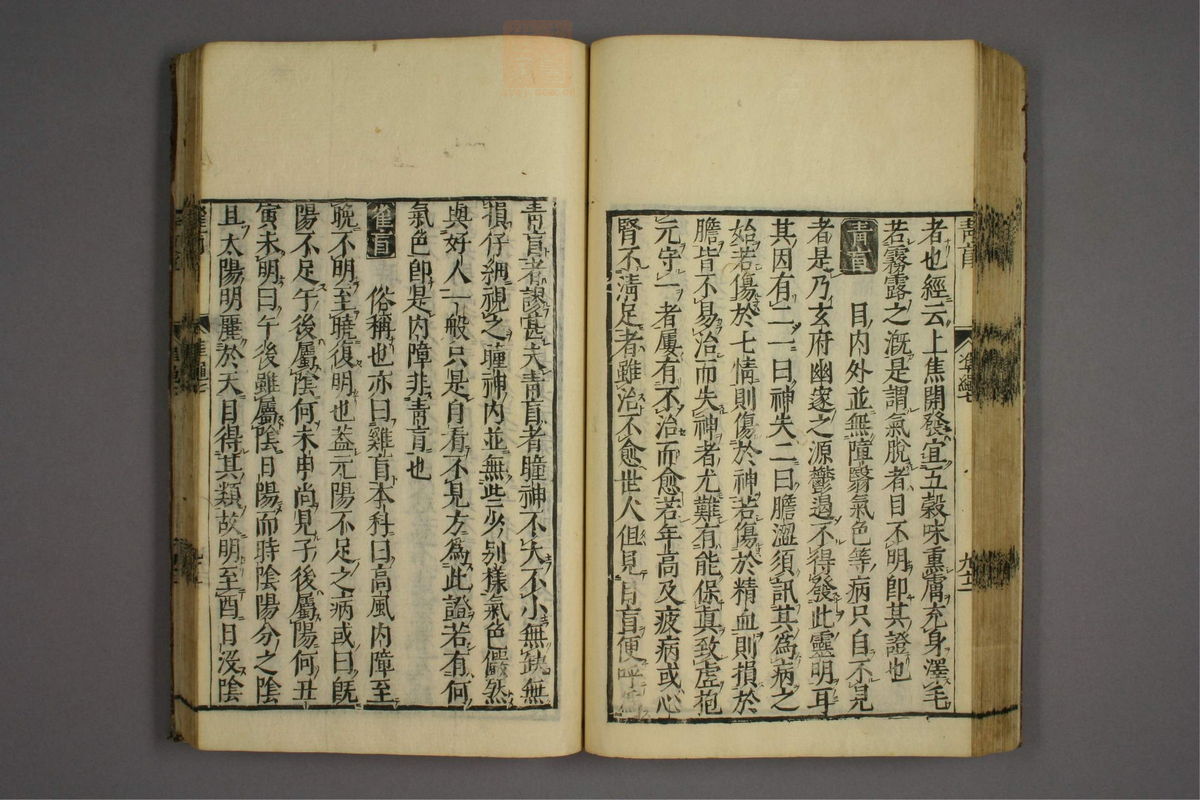 者也經云上焦開發宣五穀味熏膚充身澤毛
若霧露之溉是謂氣脫者目不明即其證也
青盲　目內外並無障翳氣色等病只自不見
者是乃玄府幽邃之源鬱遏不得發此靈明耳
其因有二一曰神失二曰膽澀須訊其為病之
始若傷於七情則傷於神若傷於精血則損於
膽皆不易治而失神者尤難有能保真致虛抱
元守一者屢有不治而愈若年高及疲病或心
腎不清足者雖治不愈世人但見目盲便呼為
青盲者謬甚夫青盲者瞳神不大不小無缺無
損仔細視之瞳神內並無些少別樣氣色儼然
與好人一般只是自看不見方為此證若有何
氣色即是內障非青盲也
雀盲　俗稱也亦曰雞盲本科曰高風內障至
晚不明至曉復明也蓋元陽不足之病或曰既
陽不足午後屬陰何未申尚見子後屬陽何丑
寅未明曰午後雖屬陰日陽而時陰陽分之陰
且太陽明麗於天目得其類故明至酉日沒陰